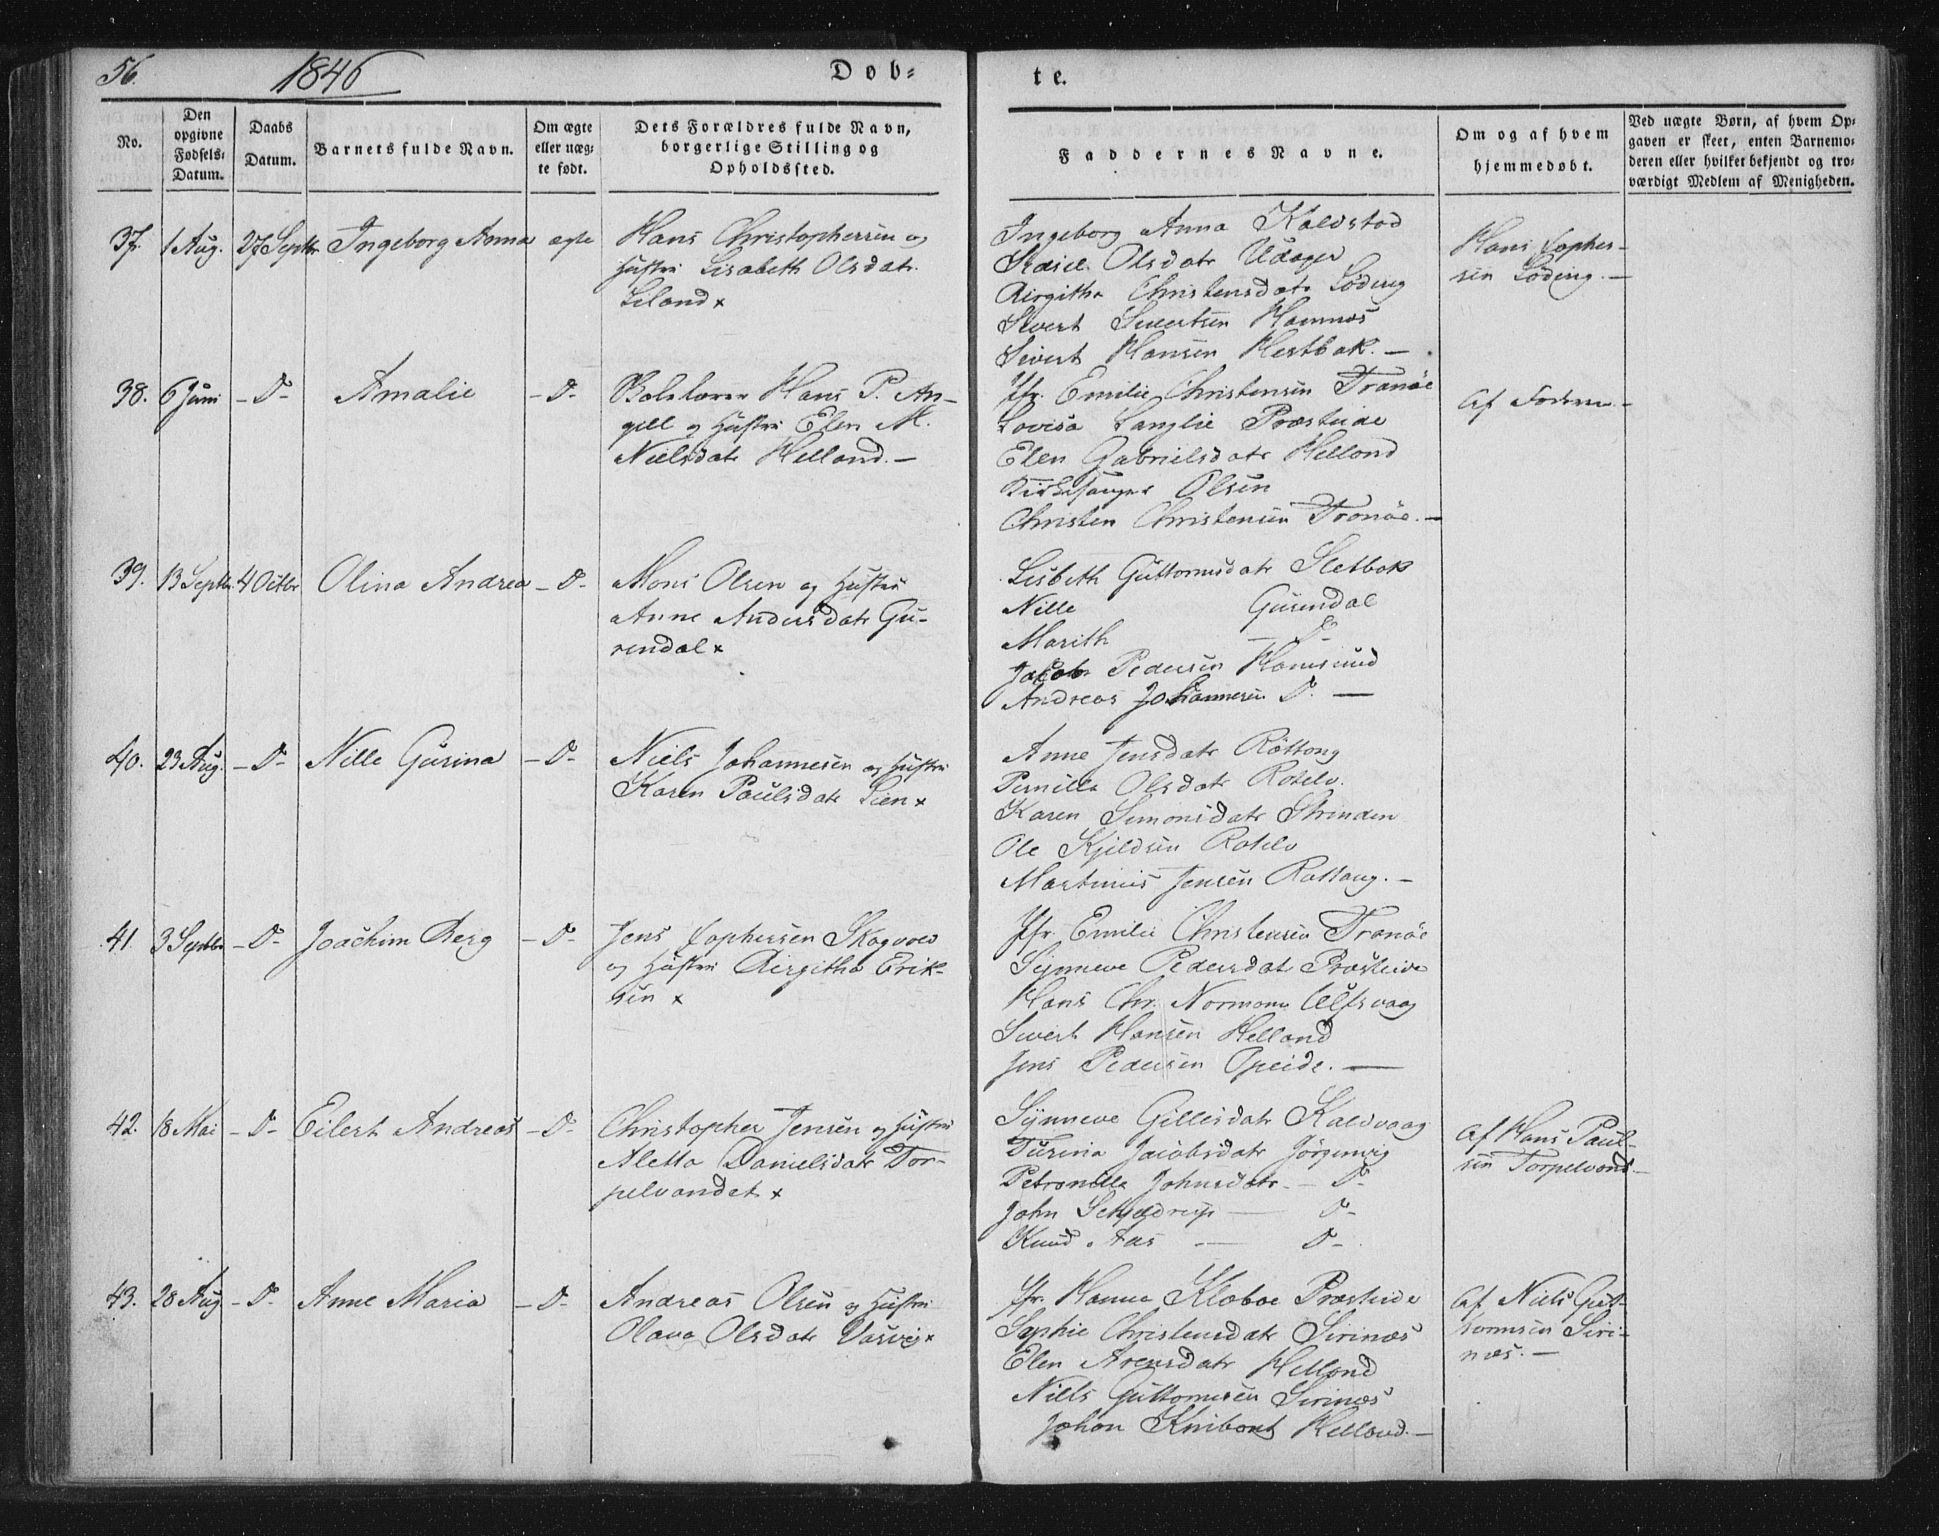 56. 1846 Døb-
te.
No.
Den opgivne Fødsels-Datum.
Daabs Datum.
Barnets fulde Navn.
Om ægte eller uægte født.
Dets Forældres fulde Navn, borgerlige Stilling og Opholdssted.
Faddernes Navne.
Om og af hvem hjemmedøbt.
Ved uægte Børn, af hvem Opgaven er skeet, enten Barnemoderen eller hvilket bekjendt og troværdigt Medlem af Menigheden.
37. 1 Aug. 27 Septbr Ingeborg Anna ægte
Hans Christophersen og
Hustru Lisabeth Olsdatr
Leland x
Ingeborg Anna Kaldstad
Olsdatr
Birgitha Christensdatr Løding
Sivert Sivertsen Hamnæs
Sivert Hansen Hestbak. —
Hans Xopher-
sen Løding. —
38. 6 Juni - D- Amalie - D-
Hans P. An-
gell og Hustru Elen M.
Nielsdatr Helland. —
Jfr. Emilie Christensen Tranöe
Lovisa Langlie Præsteide
Elen Gabrielsdatr Helland
Kirkesanger Olsen
Christen Christensen Tranöe. —
Af Faderen —
39. 13 Septbr 4 Octbr Olina Andrea - D-
Mons Olsen og Hustru
Anne Andersdatr Gu-
rendal x
Lisbeth Guttormsdatr Sletbak
Nille Gurendal
Marith — D-
Jakob Pedersen Hamsund
Andreas Johannesen D. —
40. 23 Aug. - D- Nille Gurina - D-
Niels Johannesen og Hustru
Karen Paulsdatr Lien x
Anne Jensdatr Röttang
Pernille Olsdatr Rotelv
Karen Simonsdatr Strinden
Ole Kjeldsen Rotelv
Martinus Jensen Rottang. —
41. 3 Septbr - D- Joachim Berg - D-
Jens Xophersen Skogvold
og Hustru Birgitha Erik-
sen x
Jfr. Emilie Christensen Tranöe
Synneve Pedersdatr Præsteide
Hans Chr. Normann Ulfsvaag
Sivert Hansen Helland
Jens Pedersen Opeide. —
42. 18 Mai - D- Eilert Andreas - D-
Christopher Jensen og Hustru
Aletta Danielsdatr Tor-
pelvandet x
Synneve Gillesdatr Kaldvaag
Turina Jacobsdatr Jörgenvig
Petronilla Johnsdatr — D-
John Schjeldrup — D-
Knud Aas — D-
Af Hans Paul-
sen Torpelvand. —
43. 28 Aug - D- Anne Maria - D-
Andreas Olsen og Hustru
Olava Olsdatr Vasvig x
Jfr. Hanna Klæboe Præsteide
Sophie Christensdatr Sirinæs
Elen Arensdatr Helland
Niels Guttormsen Sirinæs
Johan Knibont Helland. —
Af Niels Gut-
tormsen Siri-
næs. —